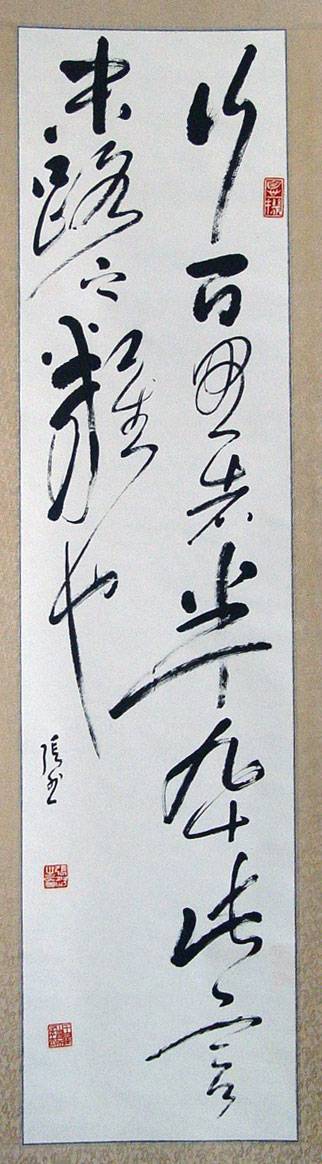 行百里者半九十此言
末路之難也